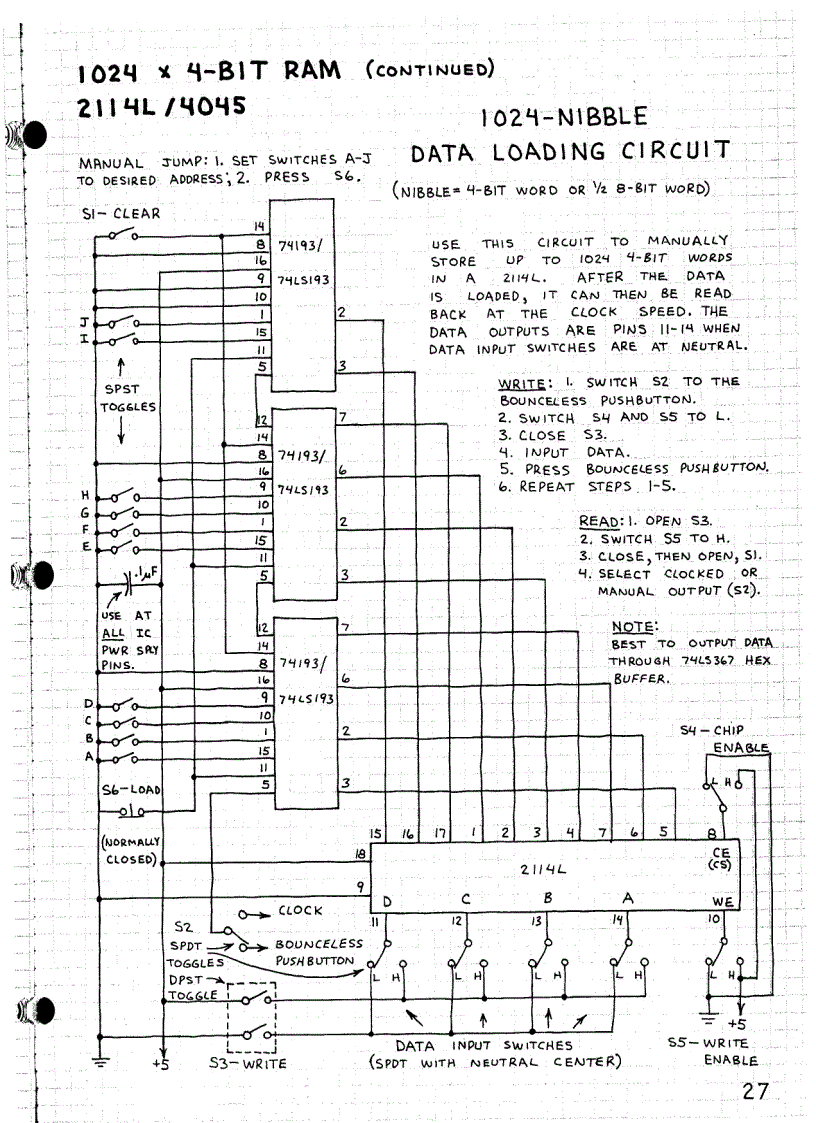 1024 x 4-BIT RAM (CONTINUED)
2114L/4045
1024-NIBBLE
DATA LOADING CIRCUIT
(NIBBLE = 4-BIT WORD OR 1/2 8-BIT WORD)
MANUAL JUMP: 1. SET SWITCHES A-J
TO DESIRED ADDRESS; 2. PRESS S6.
USE THIS CIRCUIT TO MANUALLY
STORE UP TO 1024 4-BIT WORDS
IN A 2114L. AFTER THE DATA
IS LOADED, IT CAN THEN BE READ
BACK AT THE CLOCK SPEED. THE
DATA OUTPUTS ARE PINS 11-14 WHEN
DATA INPUT SWITCHES ARE AT NEUTRAL.
WRITE: 1. SWITCH S2 TO THE
BOUNCELESS PUSHBUTTON.
2. SWITCH S4 AND S5 TO L.
3. CLOSE S3.
4. INPUT DATA.
5. PRESS BOUNCELESS PUSHBUTTON.
6. REPEAT STEPS 1-5.
READ: 1. OPEN S3.
2. SWITCH S5 TO H.
3. CLOSE, THEN OPEN, S1.
4. SELECT CLOCKED OR
MANUAL OUTPUT (S2).
NOTE:
BEST TO OUTPUT DATA
THROUGH 74LS367 HEX
BUFFER.
S1- CLEAR
14
8
16
9
10
1
15
11
5
74193/
74LS193
2
3
J
I
SPST
TOGGLES
12
14
8
16
9
10
1
15
11
5
74193/
74LS193
7
6
2
3
H
G
F
E
.1μF
USE AT
ALL IC
PWR SPLY
PINS.
12
14
8
16
9
10
1
15
11
5
74193/
74LS193
7
6
2
3
D
C
B
A
S6-LOAD
(NORMALLY
CLOSED)
S4-CHIP
ENABLE
L H
15 16 17 1 2 3 4 7 6 5 8
18
9
2114L
CE
(CS)
D C B A WE
11 12 13 14 10
S2
SPDT
TOGGLES
CLOCK
BOUNCELESS
PUSHBUTTON
DPST
TOGGLE
L H L H L H L H L H
+5
S3-WRITE
DATA INPUT SWITCHES
(SPDT WITH NEUTRAL CENTER)
+5
S5-WRITE
ENABLE
27